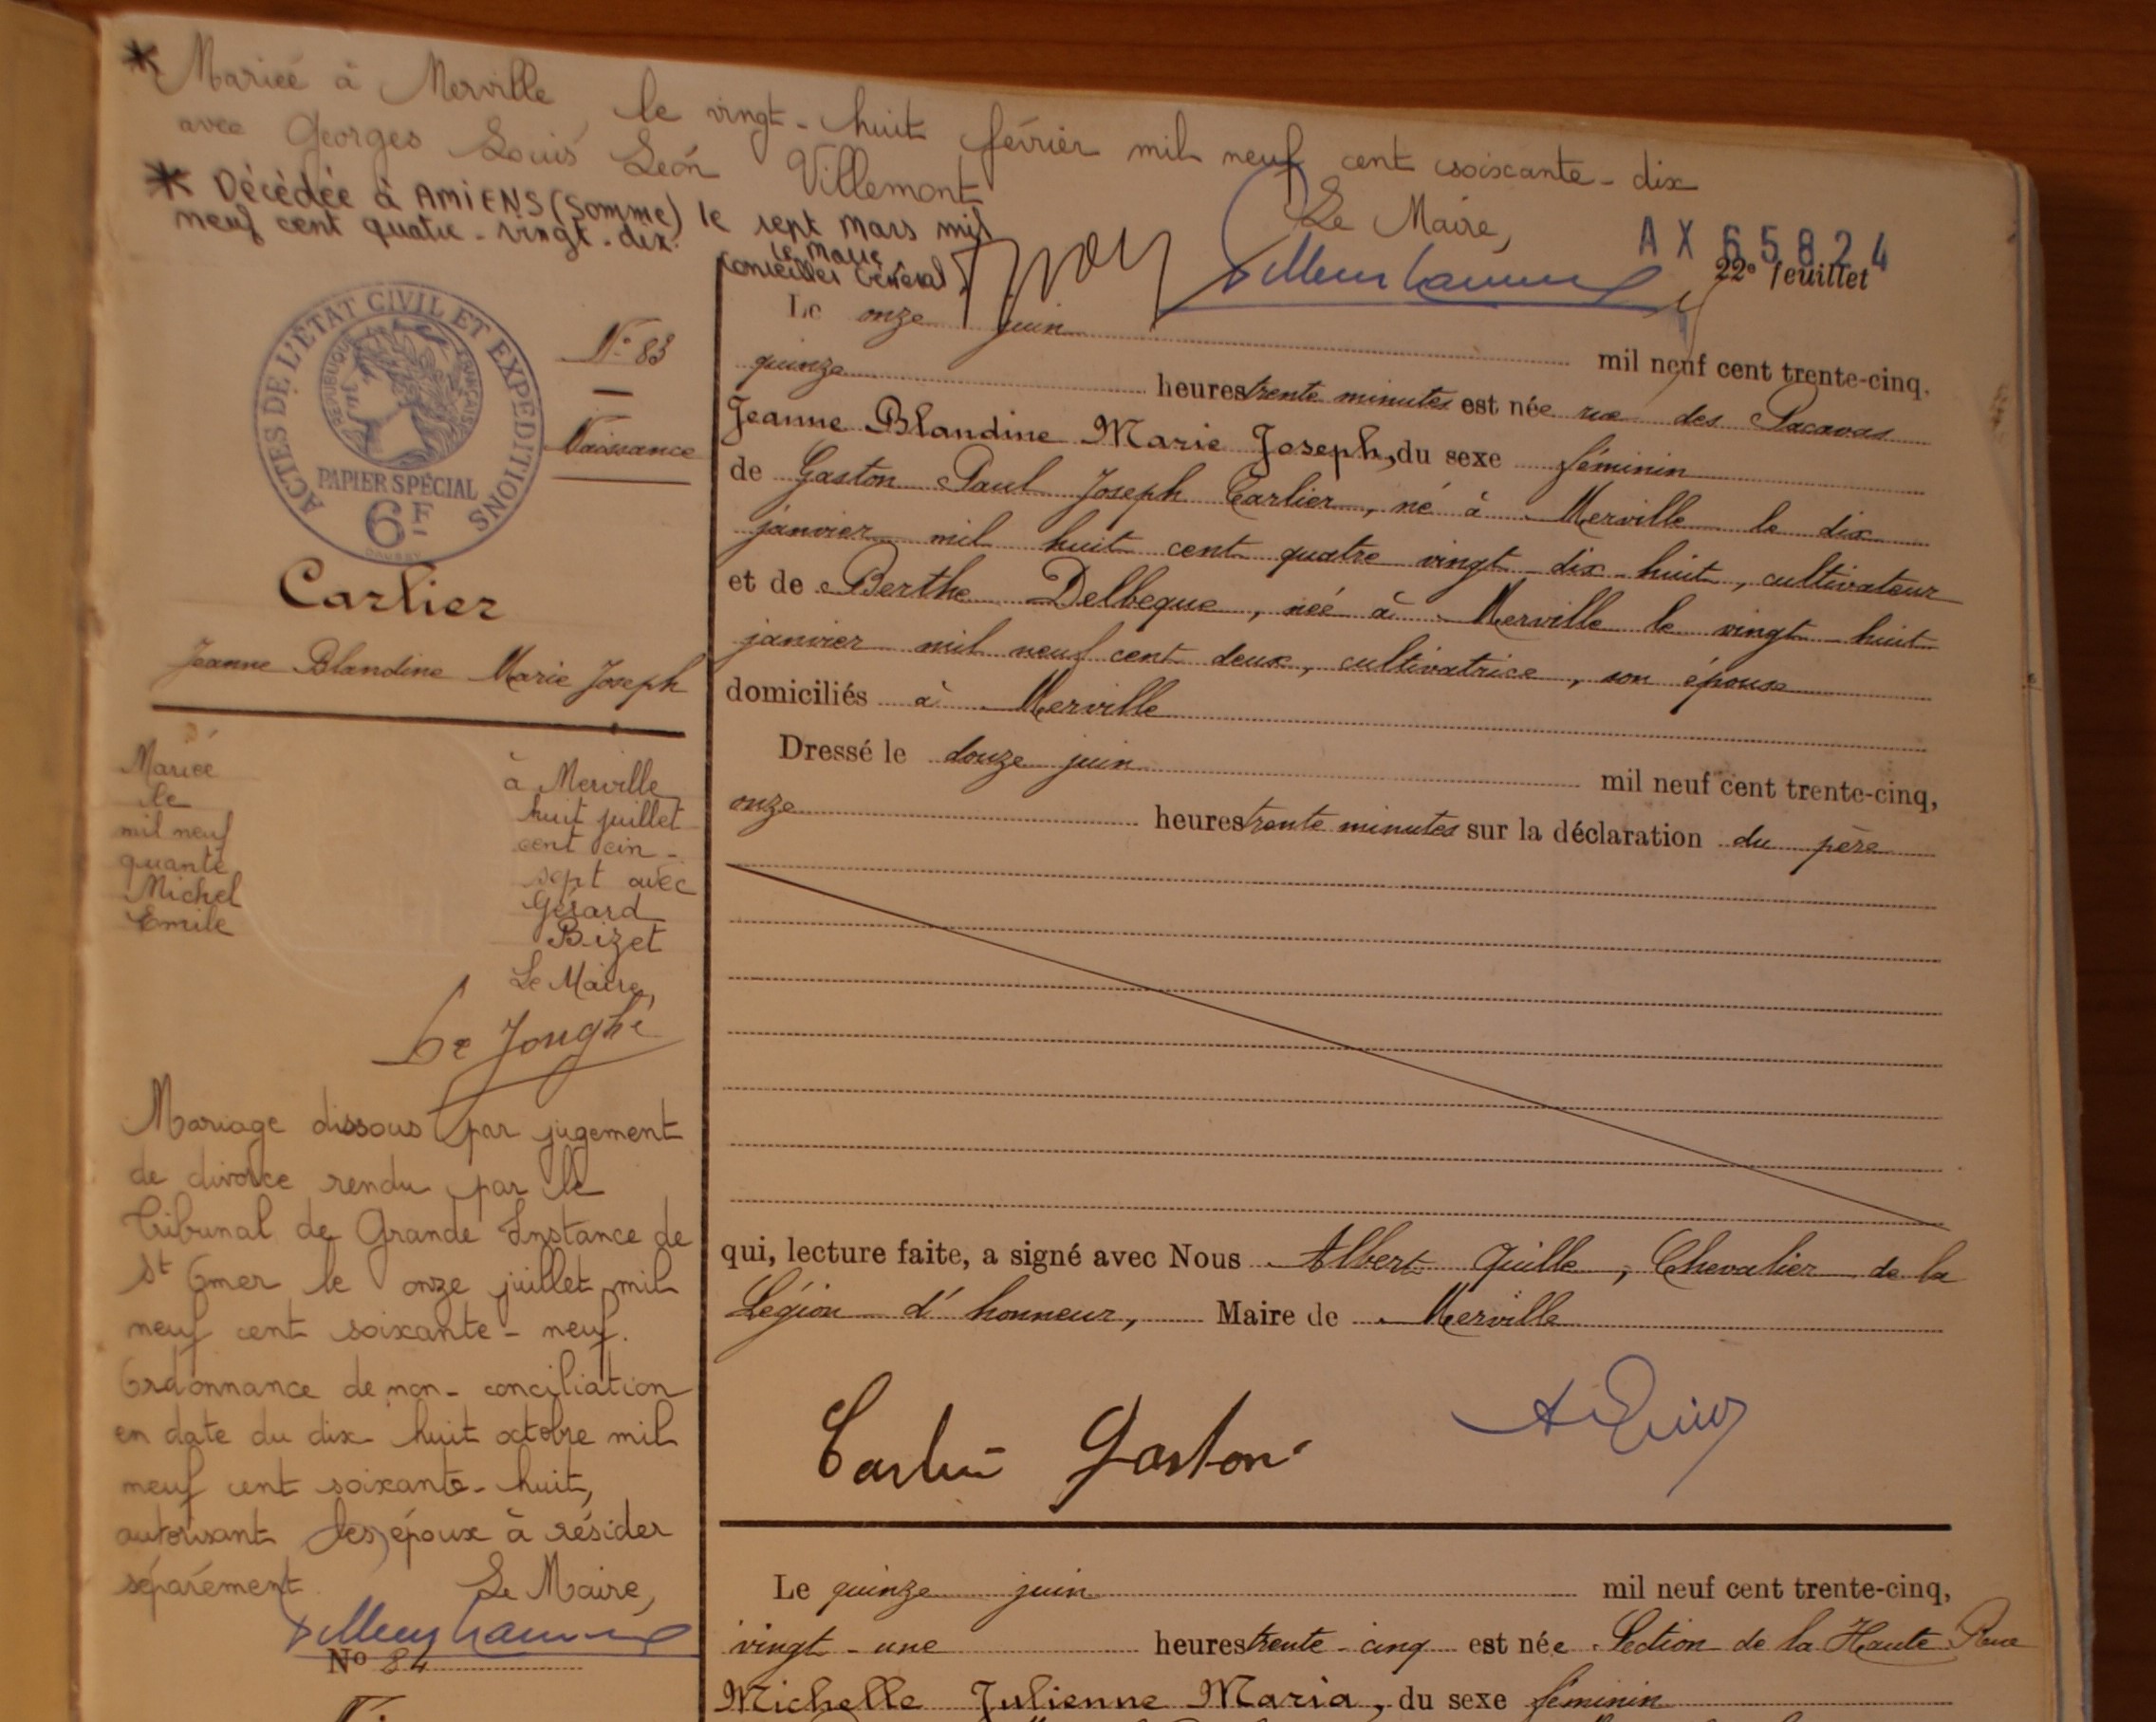 * Mariée à Merville, le vingt-huit février mil neuf cent soixante-dix
avec Georges Louis Léon Villemont
Le Maire,
* Décédée à AMIENS (Somme) le sept Mars mil
neuf cent quatre-vingt-dix.
Le Maire
Conseiller Général,
AX 65824
22e feuillet
ACTES DE L'ÉTAT CIVIL ET EXPÉDITIONS
RÉPUBLIQUE FRANÇAISE
PAPIER SPÉCIAL
6F
N° 83
Naissance
Carlier
Jeanne Blandine Marie Joseph
Mariée à Merville
le huit juillet
mil neuf cent cin-
quante sept avec
Michel Gérard
Emile Bizet
Le Maire,
De Jonghe
Mariage dissous par jugement
de divorce rendu par le
Tribunal de Grande Instance de
St Omer le onze juillet mil
neuf cent soixante-neuf.
Ordonnance de non-conciliation
en date du dix huit octobre mil
neuf cent soixante-huit,
autorisant les époux à résider
séparément
Le Maire,
No 84
Le onze juin mil neuf cent trente-cinq,
quinze heures trente minutes est née rue des Pacavas
Jeanne Blandine Marie Joseph, du sexe féminin
de Gaston Paul Joseph Carlier, né à Merville le dix
janvier mil huit cent quatre vingt dix-huit, cultivateur
et de Berthe Delbeque, née à Merville le vingt huit
janvier mil neuf cent deux, cultivatrice, son épouse
domiciliés à Merville
Dressé le douze juin mil neuf cent trente-cinq,
onze heures trente minutes sur la déclaration du père
qui, lecture faite, a signé avec Nous Albert Quille, Chevalier de la
Légion d'honneur, Maire de Merville
Carlier Gaston
Le quinze juin mil neuf cent trente-cinq,
vingt-une heures trente-cinq est née Section de la Haute Rue
Michelle Julienne Maria, du sexe féminin